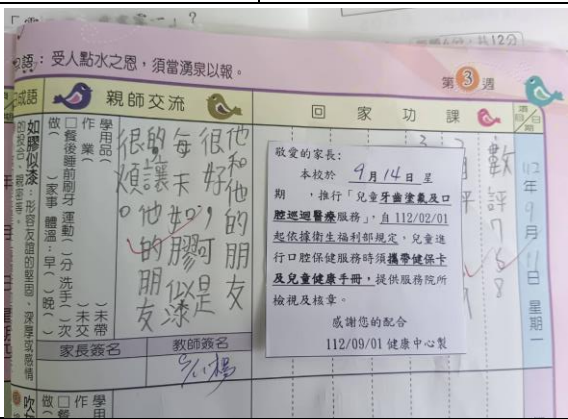 受人點水之恩，須當湧泉以報。
第3週
成語
親師交流
回家功課
如膠似漆：形容友誼的堅固、深厚或感情
的投合、親密等。
學用品（ ）未帶
作業（ ）未交
□餐後睡前刷牙 運動（ ）分 洗手（ ）次
做（ ）家事 體溫：早（ ）晚（ ）
他和他的朋友
很好，可是
每天如膠似漆
的讓他的朋友
很煩。
家長簽名
教師簽名
敬愛的家長：
本校於 9月14日 星
期 ，推行「兒童牙齒塗氟及口
腔巡迴醫療服務」，自 112/02/01
起依據衛生福利部規定，兒童進
行口腔保健服務時須攜帶健保卡
及兒童健康手冊，提供服務院所
檢視及核章。
感謝您的配合
112/09/01 健康中心製
數評7、8
112年9月11日 星期一